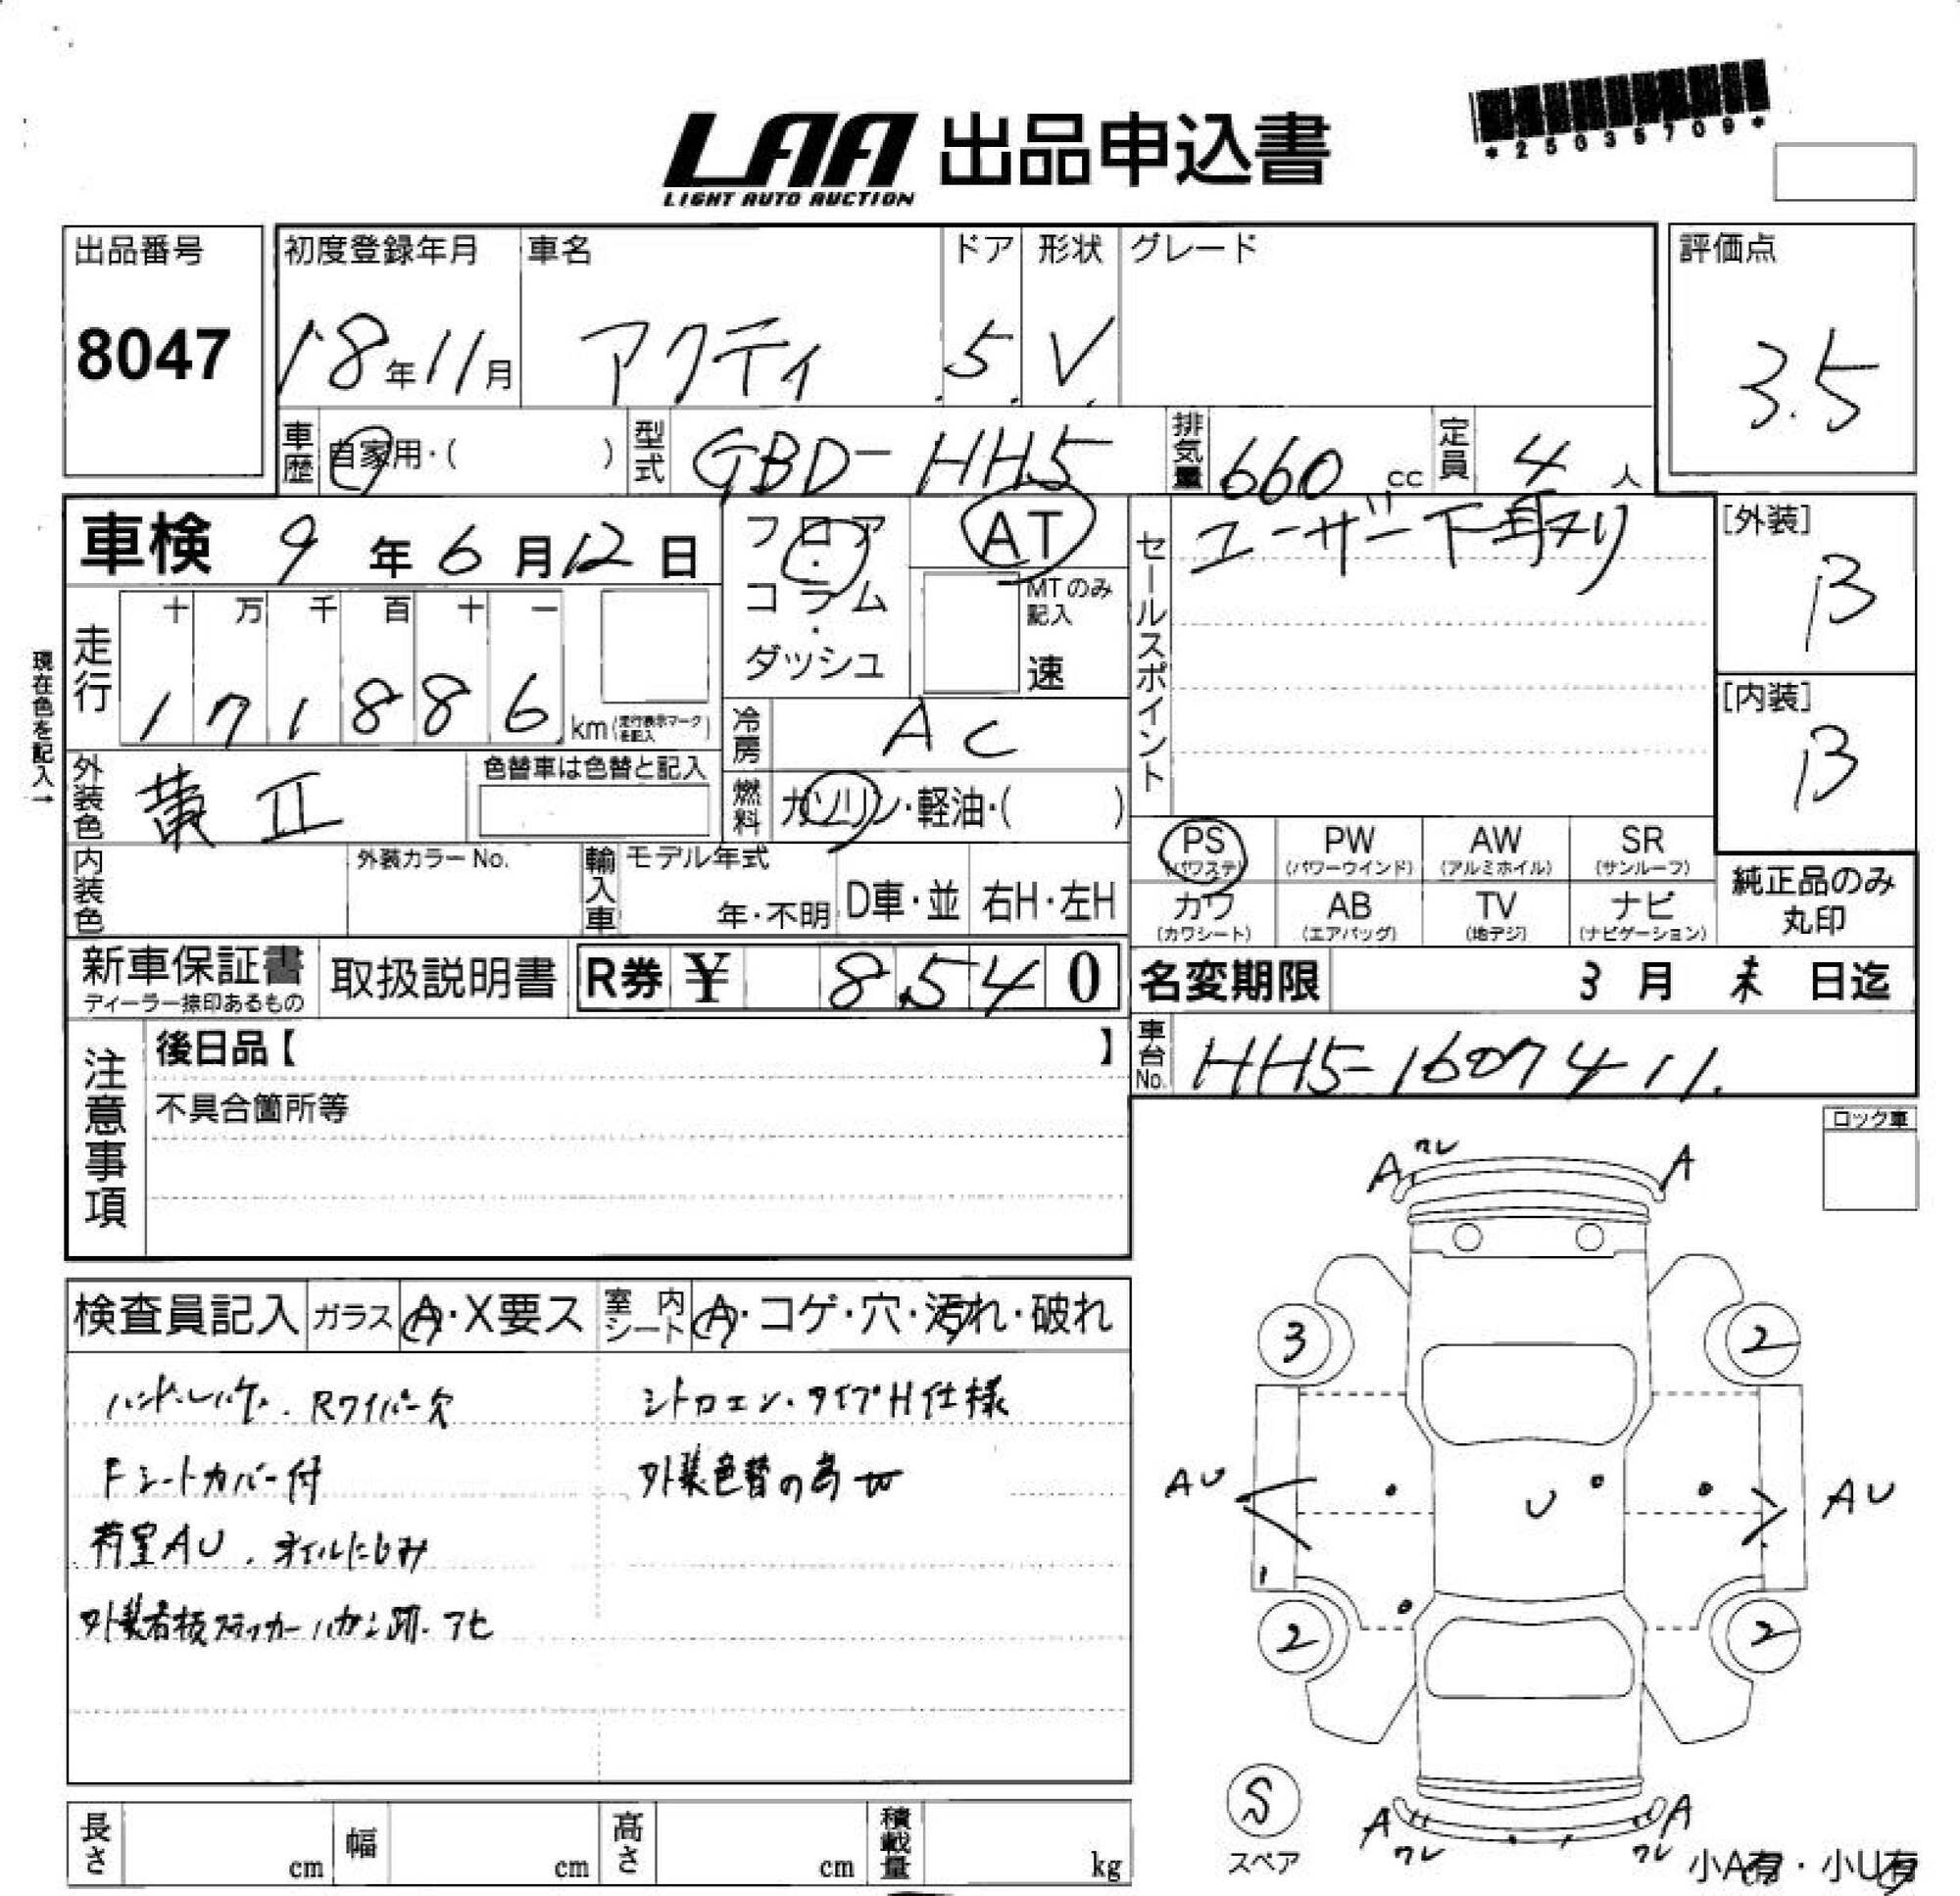 LAA 出品申込書
LIGHT AUTO AUCTION
*25035709*
出品番号
8047
初度登録年月
18年11月
車名
アクティ
ドア
5
形状
V
グレード
評価点
3.5
車歴
自家用・( )
型式
GBD-HH5
排気量
660 cc
定員
4 人
車検 9年6月12日
フロア・コラム・ダッシュ
AT
MTのみ記入
速
セールスポイント
ユーザー下取り
[外装]
B
[内装]
B
現在色を記入→
走行
十 万 千 百 十 一
1 7 1 8 8 6 km(走行表示マークを記入)
冷房
AC
外装色
黄II
色替車は色替と記入
燃料
ガソリン・軽油・( )
内装色
外装カラーNo.
輸入車
モデル年式
年・不明
D車・並
右H・左H
PS
(パワステ)
PW
(パワーウインド)
AW
(アルミホイル)
SR
(サンルーフ)
カワ
(カワシート)
AB
(エアバッグ)
TV
(地デジ)
ナビ
(ナビゲーション)
純正品のみ
丸印
新車保証書
ディーラー捺印あるもの
取扱説明書
R券 ¥ 8540
名変期限 3月末日迄
車台No.
HH5-1607411
注意事項
後日品【 】
不具合箇所等
ロック車
検査員記入
ガラス
A・X要ス
室内シート
A・コゲ・穴・汚れ・破れ
Rワイパー欠
Fシートカバー付
荷室AU、オイルにじみ
シトロエン・タイプH仕様
外装色替の為
ワレ
A
A
3
2
AU
U
AU
2
2
S
スペア
A
ワレ
A
ワレ
小A有・小U有
長さ cm
幅 cm
高さ cm
積載量 kg